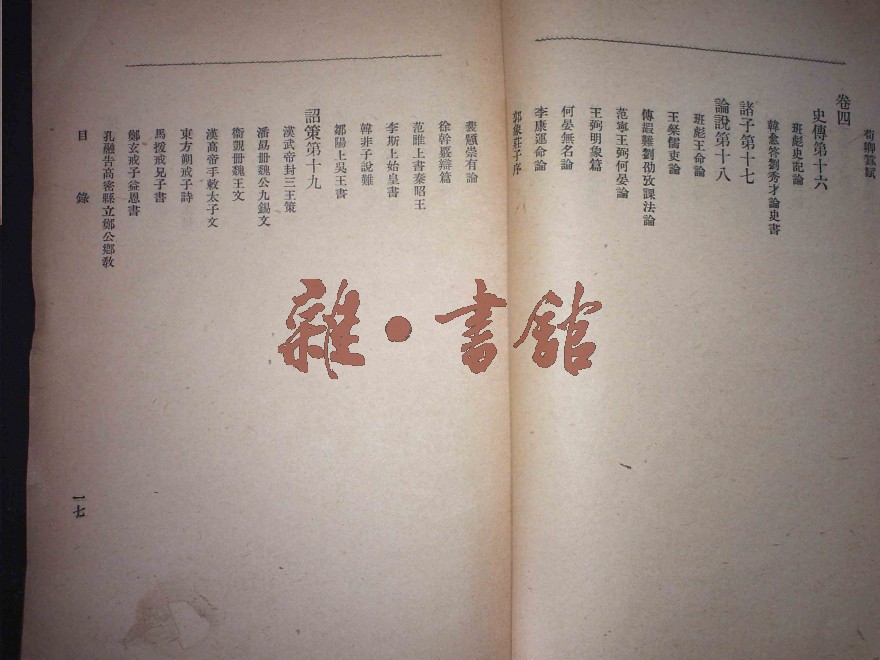 荀卿蠶賦
卷四
史傳第十六
班彪史記論
韓愈答劉秀才論史書
諸子第十七
論說第十八
班彪王命論
王粲儒吏論
傅嘏難劉劭攷課法論
范寧王弼何晏論
王弼明象篇
何晏無名論
李康運命論
郭象莊子序
裴頠崇有論
徐幹覈辯篇
范雎上書秦昭王
李斯上始皇書
韓非子說難
鄒陽上吳王書
詔策第十九
漢武帝封三王策
潘勗冊魏公九錫文
衞覬冊魏王文
漢高帝手敕太子文
東方朔戒子詩
馬援戒兄子書
鄭玄戒子益恩書
孔融告高密縣立鄭公鄉教
目錄
一七
雜·書館